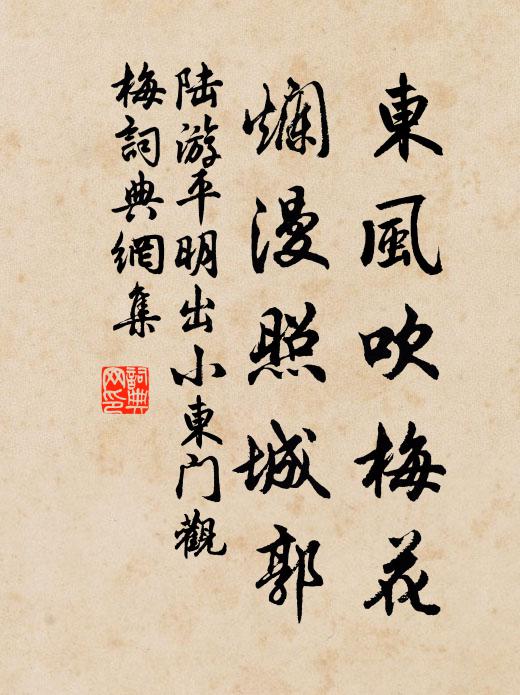 東風吹梅花
爛漫照城郭
陸游平明出小東门觀
梅詞典網集
詞典
网印